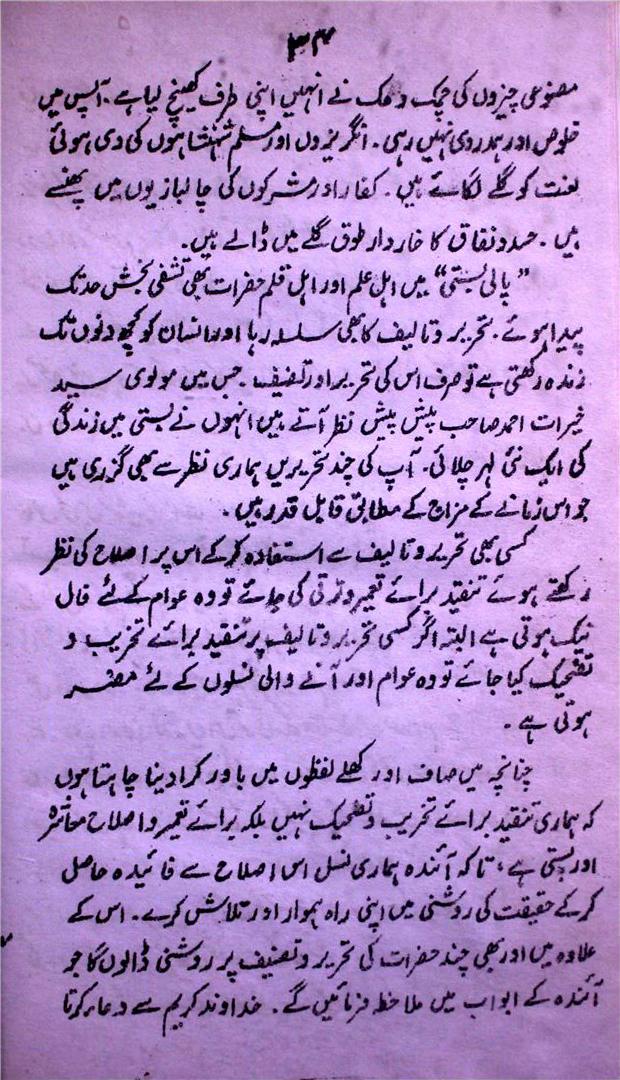 ۳۴
مصنوعی چیزوں کی چمک دمک نے انہیں اپنی طرف کھینچ لیا ہے۔ آپس میں
خلوص اور ہمدردی نہیں رہی۔ انگریزوں اور مسلم شہنشاہوں کی دی ہوئی
لعنت کو گلے لگائے ہیں۔ کفار اور مشرکوں کی چالبازیوں میں پھنسے
ہیں۔ حسد و نفاق کا خاردار طوق گلے میں ڈالے ہیں۔
”پالی بستی“ میں اہل علم اور اہل قلم حضرات بھی تشفی بخش حد تک
پیدا ہوئے۔ تحریر و تالیف کا بھی سلسلہ رہا اور انسان کو کچھ دنوں تک
زندہ رکھتی ہے تو صرف اس کی تحریر اور تصنیف۔ جس میں مولوی سید
خیرات احمد صاحب پیش پیش نظر آتے ہیں انہوں نے بستی میں زندگی
کی ایک نئی لہر چلائی۔ آپ کی چند تحریریں ہماری نظر سے بھی گزری ہیں
جو اس زمانے کے مزاج کے مطابق قابل قدر ہیں۔
کسی بھی تحریر و تالیف سے استفادہ کر کے اس پر اصلاح کی نظر
رکھتے ہوئے تنقید برائے تعمیر و ترقی کی جائے تو وہ عوام کے لئے فال
نیک ہوتی ہے البتہ اگر کسی تحریر و تالیف پر تنقید برائے تخریب و
تضحیک کیا جائے تو وہ عوام اور آنے والی نسلوں کے لئے مضر
ہوتی ہے۔
چنانچہ میں صاف اور کھلے لفظوں میں باور کرا دینا چاہتا ہوں
کہ ہماری تنقید برائے تخریب و تضحیک نہیں بلکہ برائے تعمیر و اصلاح معاشرہ
اور بستی ہے، تاکہ آئندہ ہماری نسل اس اصلاح سے فائیدہ حاصل
کر کے حقیقت کی روشنی میں اپنی راہ ہموار اور تلاش کرے۔ اس کے
علاوہ میں اور بھی چند حضرات کی تحریر و تصنیف پر روشنی ڈالوں گا جو
آئندہ کے ابواب میں ملاحظہ فرمائیں گے۔ خداوند کریم سے دعاء کرتا